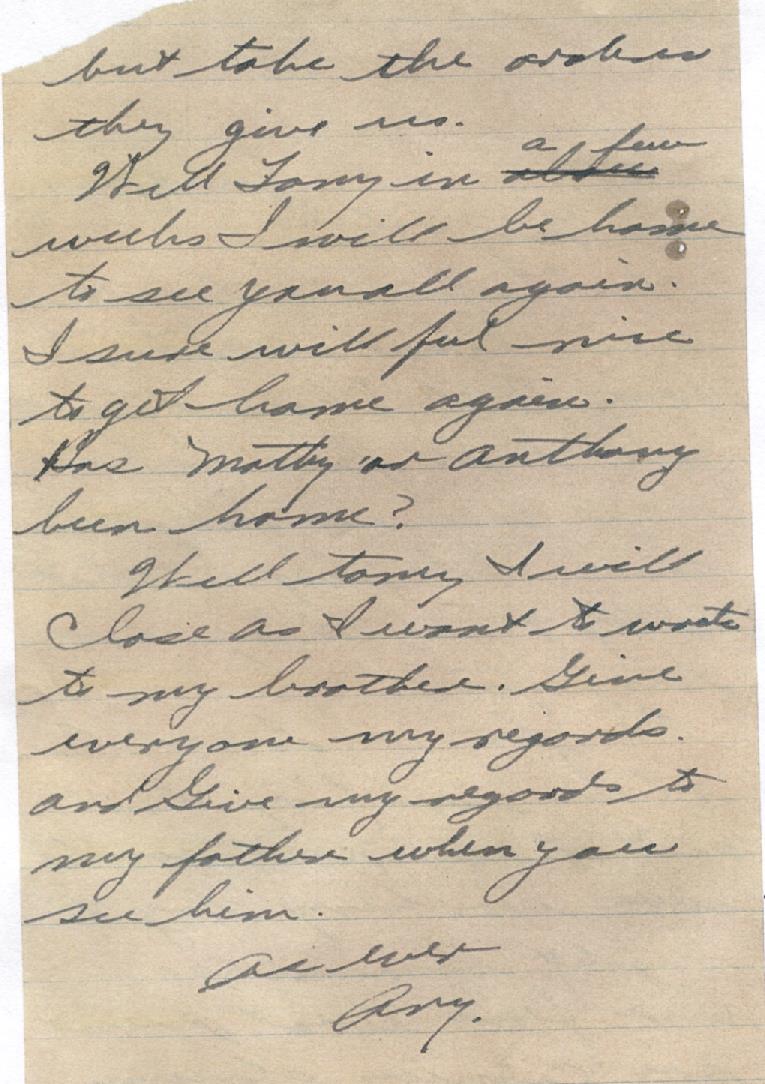 but take the orders
they give us.
Well Tony in a few
weeks I will be home
to see you all again.
I sure will feel nice
to get home again.
Has Matty or Anthony
been home?
Well tony I will
Close as I want to wrote
to my brother. Give
everyone my regards.
and Give my regards to
my father when you
see him.
As ever
Ary.